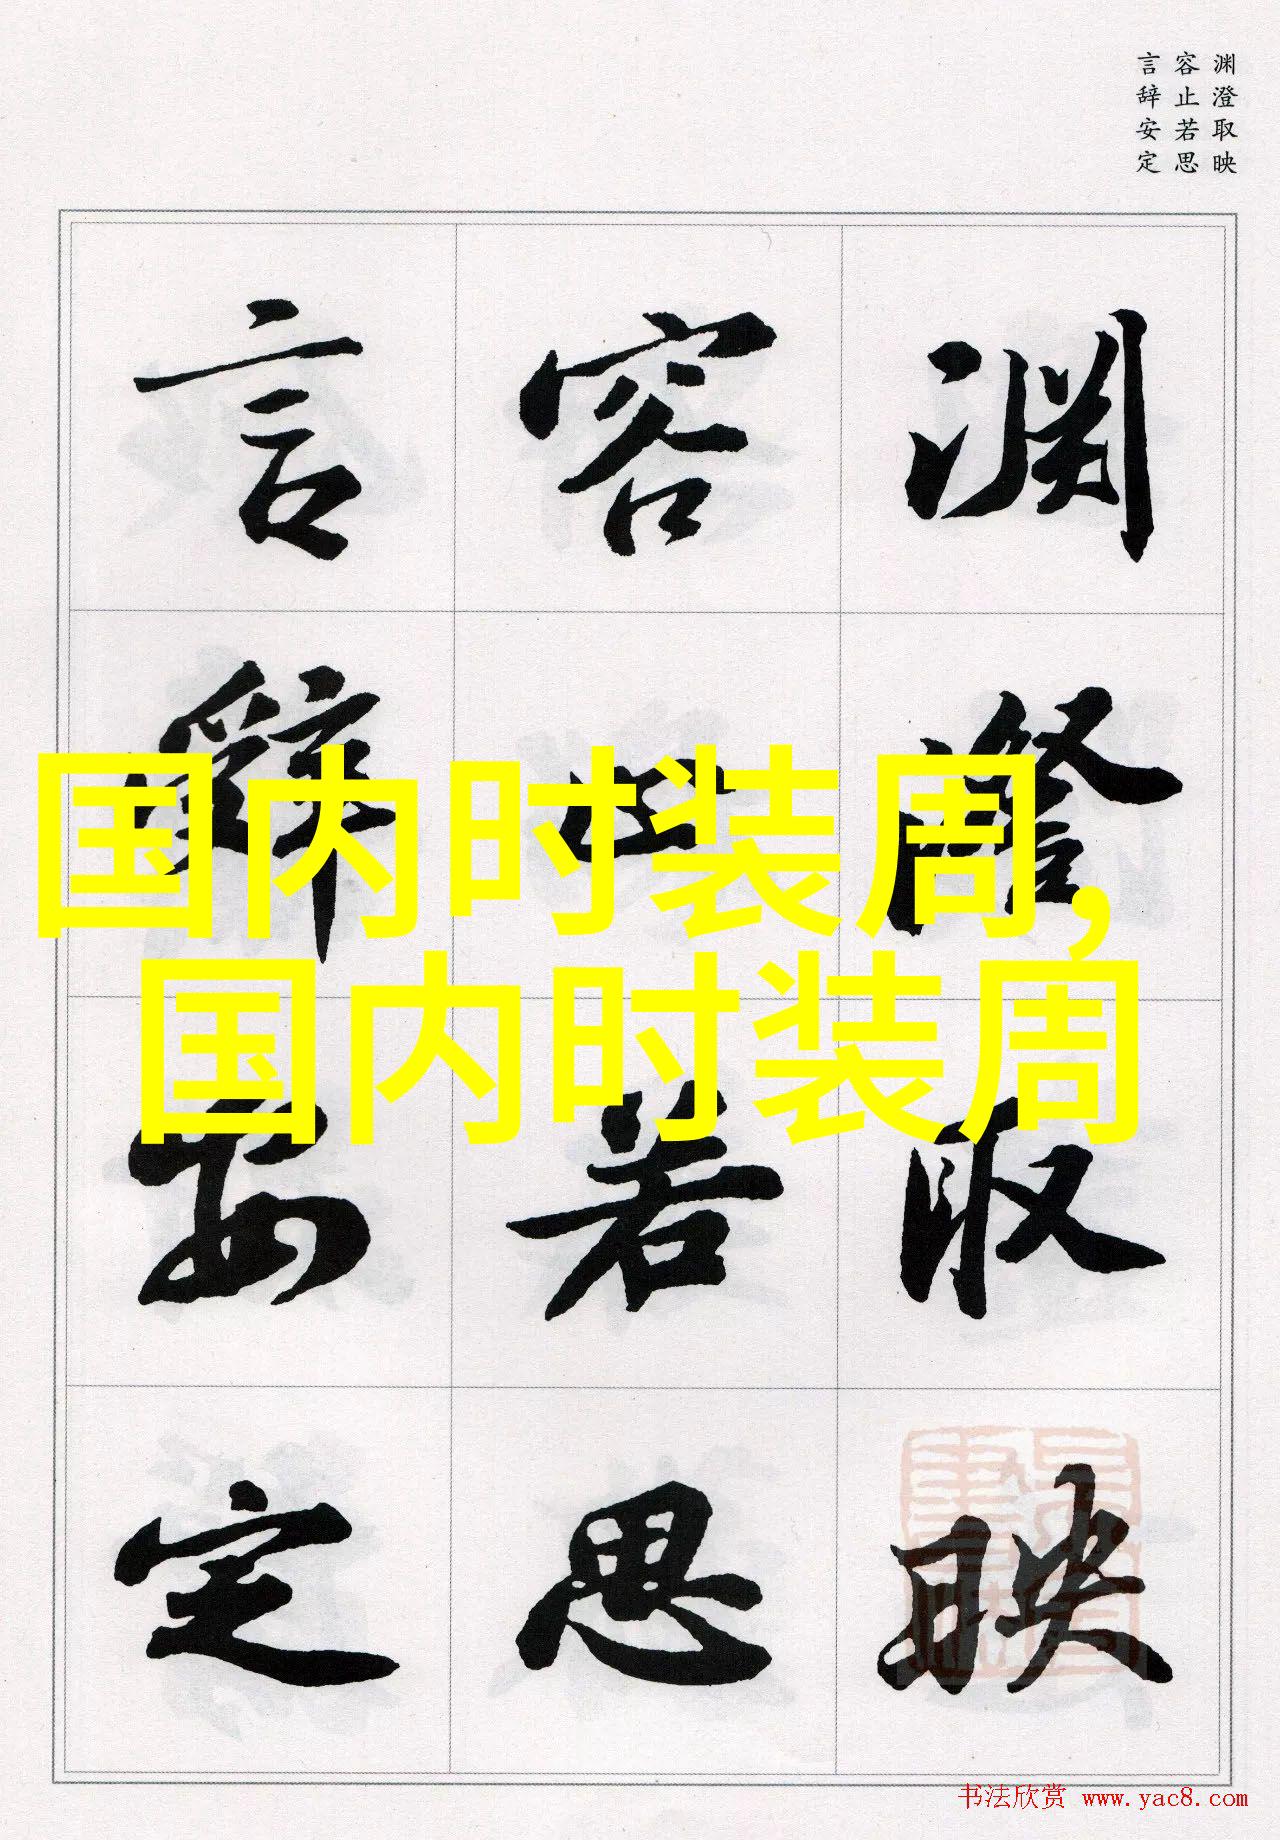 渊澄取映
容止若思
言辞安定
渊澄取映
容止若思
言辞安定
国内时装周,
国内时装周
书法欣赏 www.yac8.com